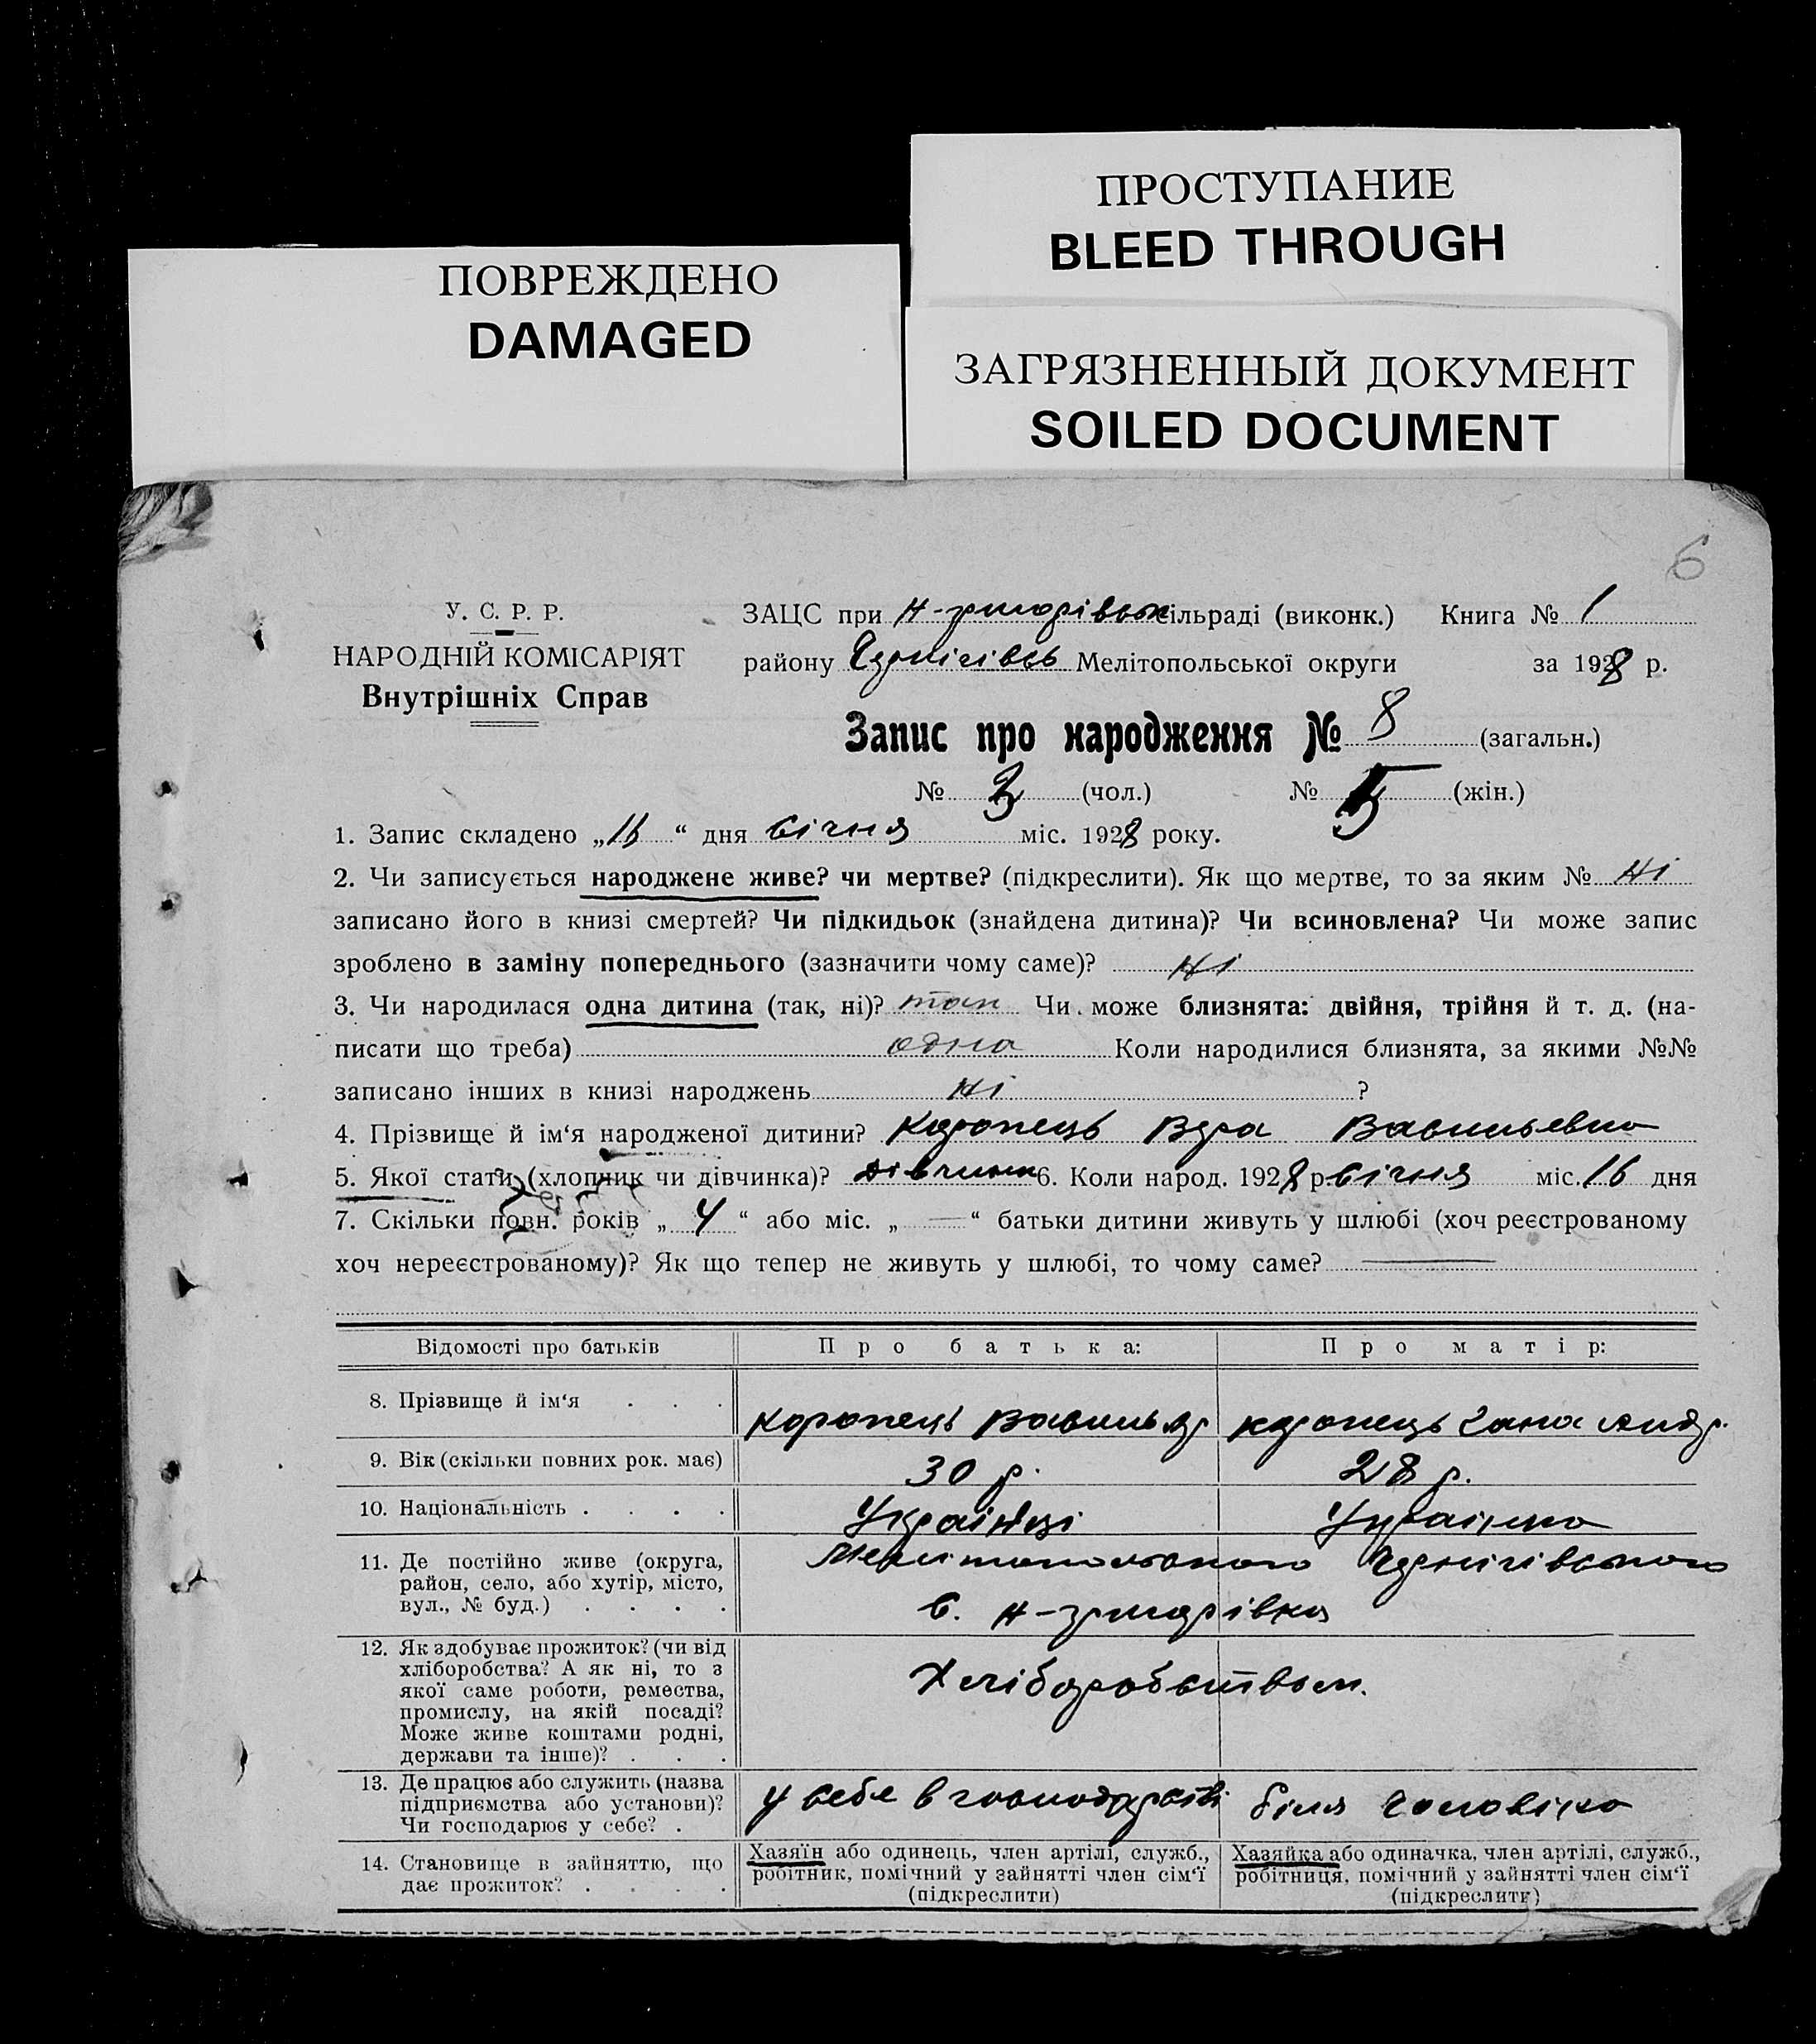 ПРОСТУПАНИЕ
BLEED THROUGH
ПОВРЕЖДЕНО
DAMAGED
ЗАГРЯЗНЕННЫЙ ДОКУМЕНТ
SOILED DOCUMENT
6
У. С. Р. Р.
НАРОДНІЙ КОМІСАРІЯТ
Внутрішніх Справ
ЗАЦС при сільраді (виконк.) Книга № 1
району Чернігівсь Мелітопольської округи за 1928 р.
Запис про народження № 8 (загальн.)
№ 3 (чол.) № 5 (жін.)
1. Запис складено „16“ дня січня міс. 1928 року.
2. Чи записується народжене живе? чи мертве? (підкреслити). Як що мертве, то за яким № ні
записано його в книзі смертей? Чи підкидьок (знайдена дитина)? Чи всиновлена? Чи може запис
зроблено в заміну попереднього (зазначити чому саме)? ні
3. Чи народилася одна дитина (так, ні)? так Чи може близнята: двійня, трійня й т. д. (на-
писати що треба) одна Коли народилися близнята, за якими №№
записано інших в книзі народжень ні ?
4. Прізвище й ім‘я народженої дитини? Коропець Вера Васильевна
5. Якої стати (хлопчик чи дівчинка)? дівчина 6. Коли народ. 1928 р січня міс. 16 дня
7. Скільки повн. років „ 4 “ або міс. „ — “ батьки дитини живуть у шлюбі (хоч реєстрованому
хоч нереєстрованому)? Як що тепер не живуть у шлюбі, то чому саме? —
Відомості про батьків Про батька: Про матір:
8. Прізвище й ім‘я . . . Коропець Василь Коропець Ганна Андр.
9. Вік (скільки повних рок. має) 30 р. 28 р.
10. Національність . . . . Українці Українка
11. Де постійно живе (округа,
район, село, або хутір, місто,
вул., № буд.) . . . .
Мелітопольского Чернігівського
с.
12. Як здобуває прожиток? (чи від
хліборобства? А як ні, то з
якої саме роботи, ремества,
промислу, на якій посаді?
Може живе коштами родні,
держави та інше)? . . .
Хліборобством.
13. Де працює або служить (назва
підприємства або установи)?
Чи господарює у себе? .
у себе в господарстві біля чоловіка
14. Становище в зайняттю, що
дає прожиток? . . . .
Хазяїн або одинець, член артілі, служб.,
робітник, помічний у зайнятті член сім‘ї
(підкреслити)
Хазяйка або одиначка, член артілі, служб.,
робітниця, помічний у зайнятті член сім‘ї
(підкреслити)